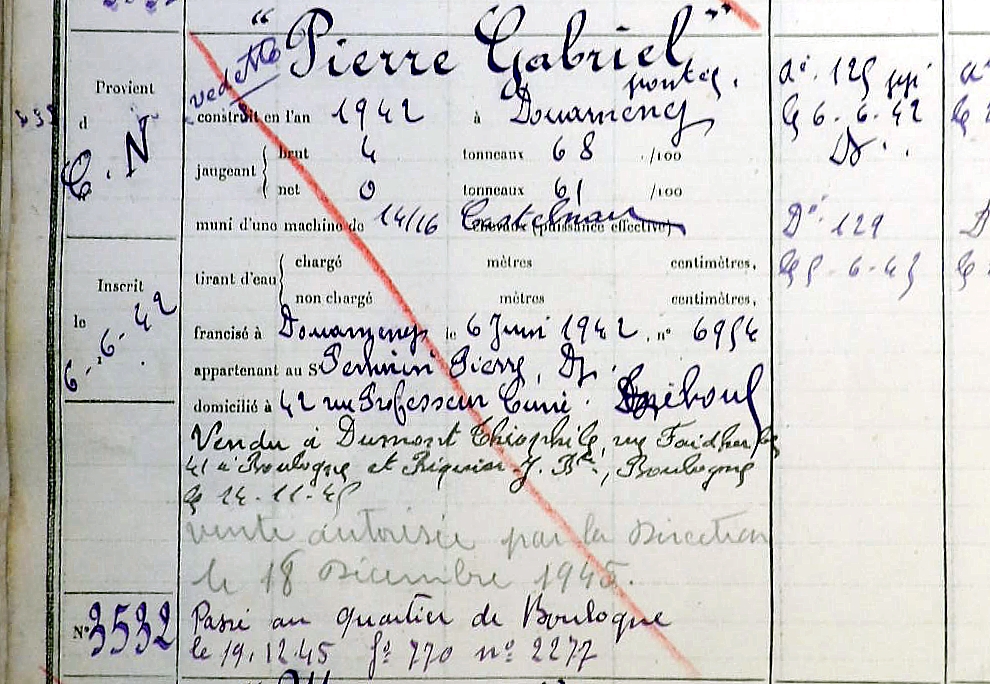 " Pierre Gabriel "
vedette
pontée.
Provient
d
C. N
construit en l'an 1942 à Douarnenez
jaugeant brut 4 tonneaux 68 /100
net 0 tonneaux 61 /100
muni d'une machine de 14/16 Castelnau chevaux (puissance effective)
tirant d'eau chargé mètres centimètres,
non chargé mètres centimètres,
Inscrit
le 6-6-42
francisé à Douarnenez le 6 Juin 1942. n° 6954
appartenant au Sr Pierre, Dz.
domicilié à 42 rue Professeur Curié. Tréboul
Vendu à Dumont Théophile, rue Faidherbe
41 à Boulogne et J. Bte, Boulogne
le 14-11-45
vente autorisée par la Direction
le 18 Décembre 1945.
N° 3532
Passé au quartier de Boulogne
le 19.12.45 f° 770 n° 2277
le 6.6.42
Dz.
D° 129